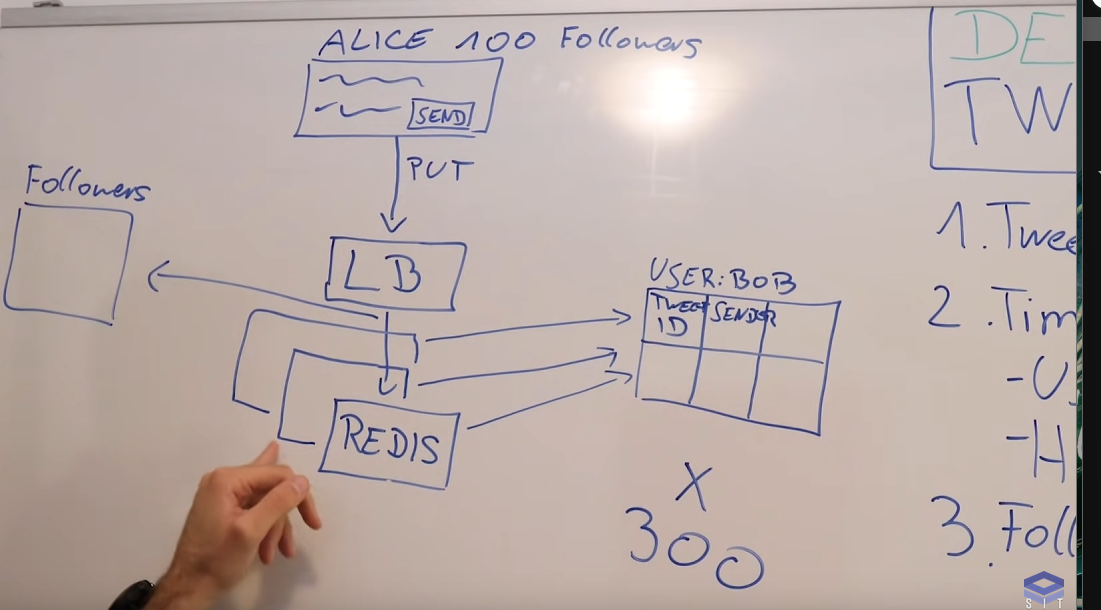 ALICE 100 Followers
SEND
PUT
Followers
LB
REDIS
USER: BOB
TWEET ID
SENDER
X
300
DE
TW
1. Twee
2. Tim
- U
- H
3. Foll
SIT